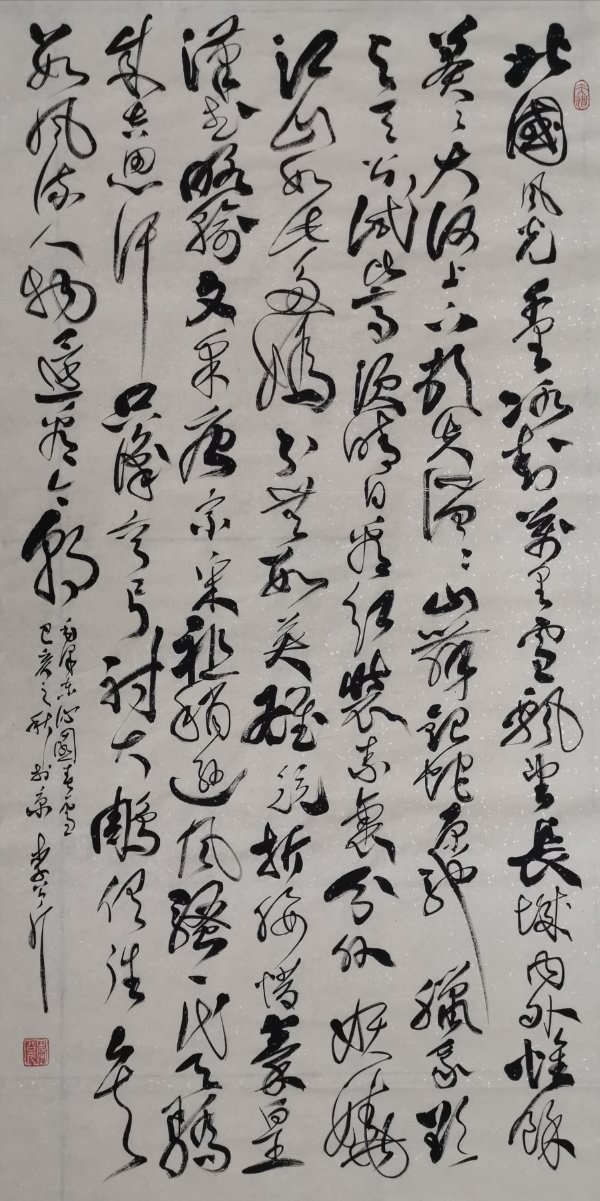 北國風光千里冰封萬里雪飄望長城內外惟餘
莽々大河上下頓失滔々山舞銀蛇原馳蠟象欲
與天公試比高須晴日看紅裝素裹分外妖嬈
江山如此多嬌引無數英雄競折腰惜秦皇
漢武略輸文采唐宗宋祖稍遜風騷一代天驕
成吉思汗只識彎弓射大鵰俱往矣
數風流人物還看今朝
毛澤東沁園春雪
己亥之秋於京 李